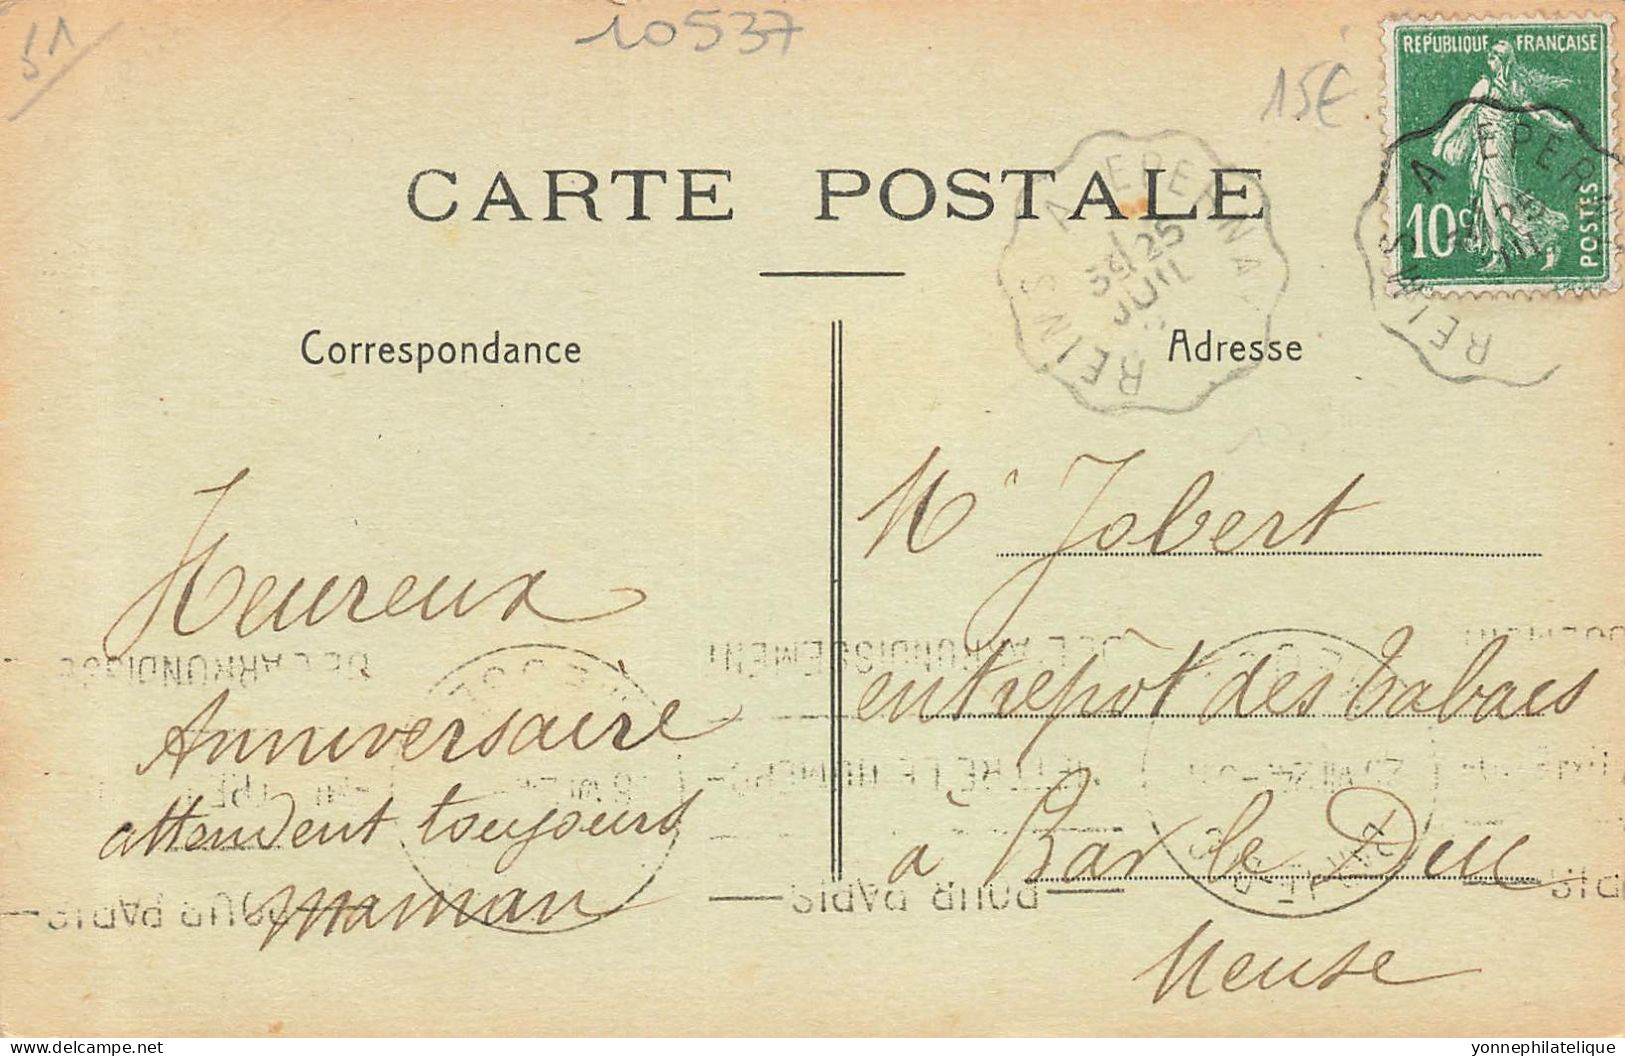 51
10537
15€
REPUBLIQUE FRANÇAISE
10c
POSTES
REIMS A EPER
CARTE POSTALE
REIMS A EPERNAY
25
JUIL
Correspondance
Adresse
Heureux
Anniversaire
attendent toujours
maman
Mr Jobert
entrepôt des tabacs
à Bar le Duc
Meuse
DE L'ARRONDISSEMENT
METTRE LE NUMERO
POUR PARIS
yonnephilatelique